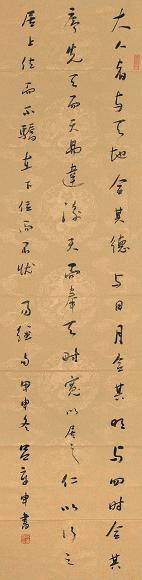 大人者与天地合其德与日月合其明与四时合其
序先天而天弗違後天而奉天时寬以居之仁以行之
居上位而不驕在下位而不忧 易經句 甲申冬 吕章申書